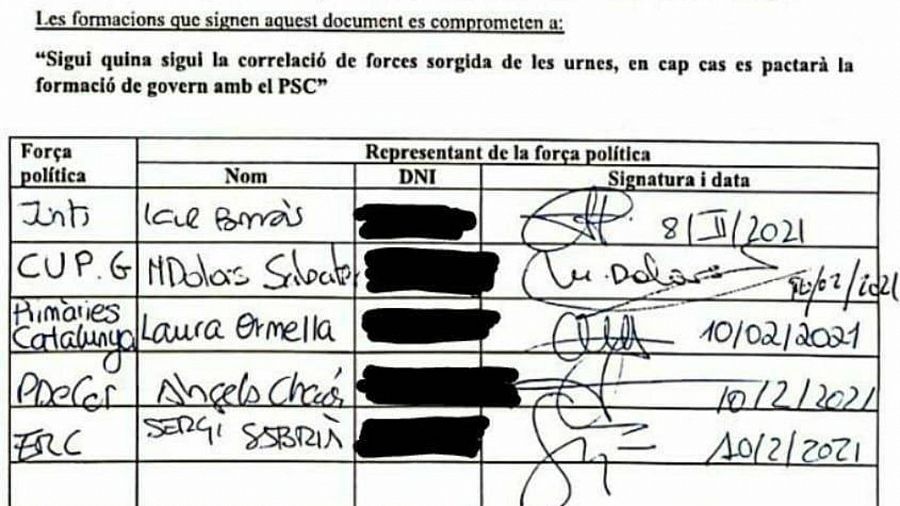 Les formacions que signen aquest document es comprometen a:
“Sigui quina sigui la correlació de forces sorgida de les urnes, en cap cas es pactarà la
formació de govern amb el PSC”
Força política
Representant de la força política
Nom DNI Signatura i data
Junts 8/II/2021
CUP.G MDolors Sabater M. Dolors 10/02/2021
Primàries Catalunya Laura Ormella 10/02/2021
PDeCAT Àngels Chacón 10/2/2021
ERC SERGI SABRIÀ 10/2/2021